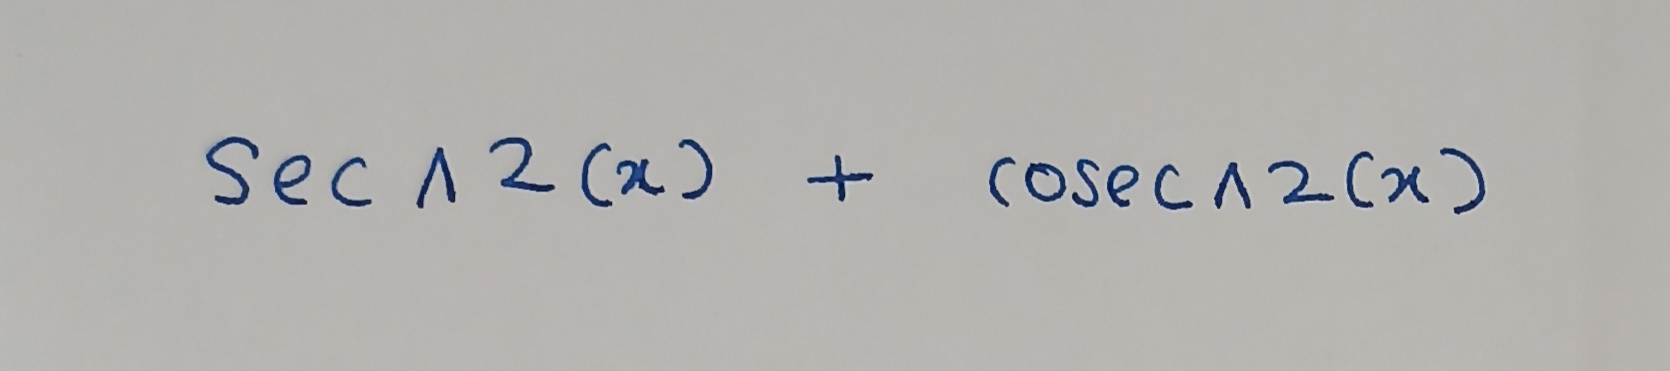 Sec ^ 2 (x) + cosec ^ 2 (x)